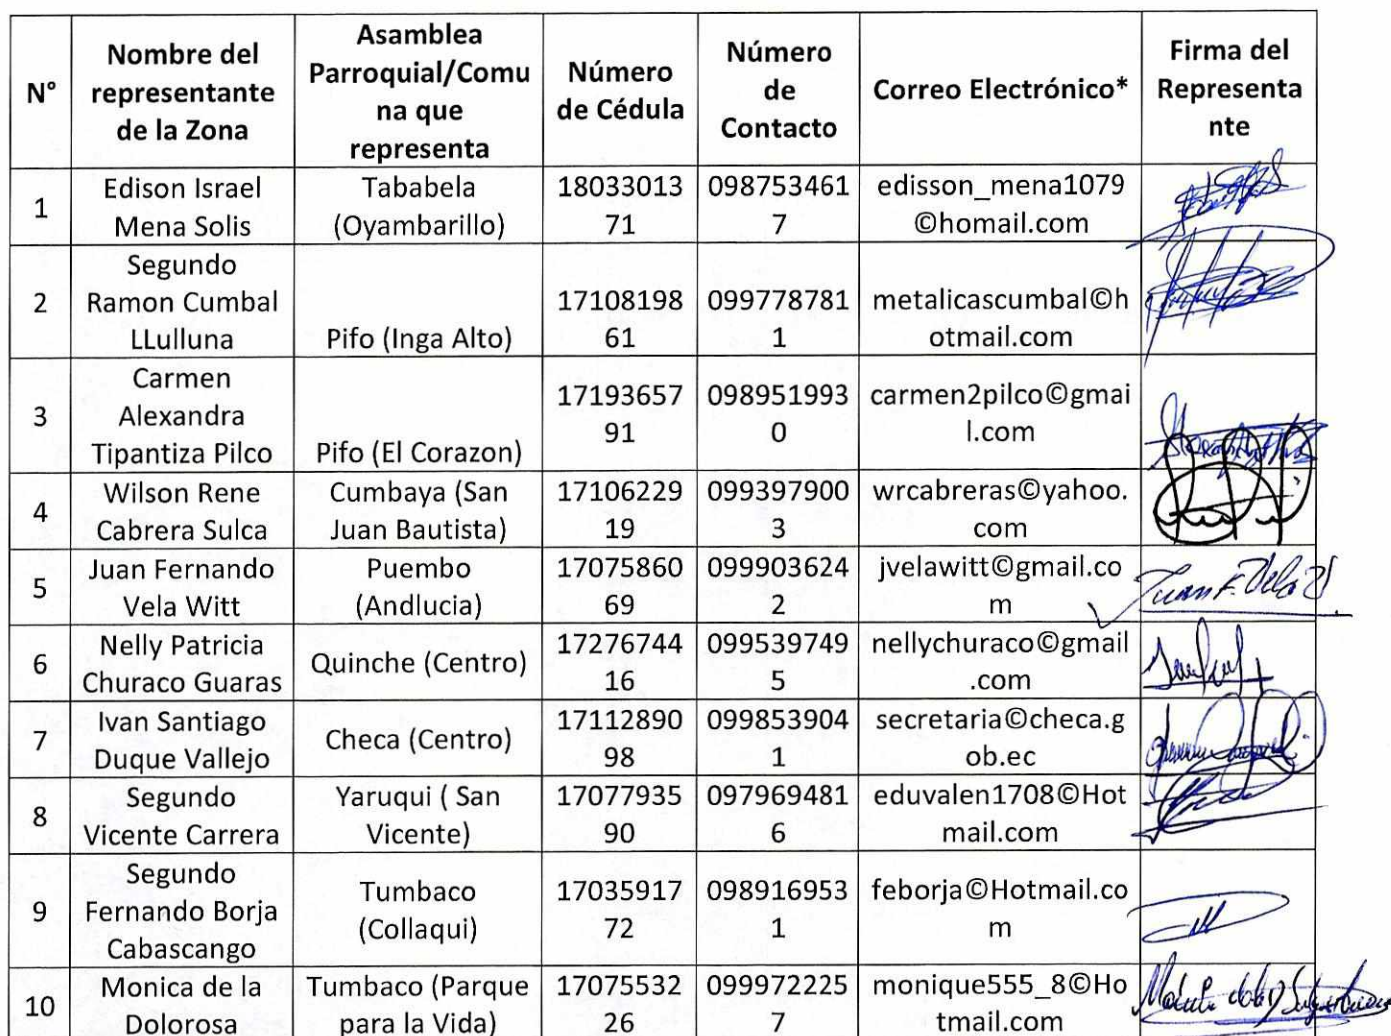 N°
Nombre del
representante
de la Zona
Asamblea
Parroquial/Comu
na que
representa
Número
de Cédula
Número
de
Contacto
Correo Electrónico*
Firma del
Representa
nte
1
Edison Israel
Mena Solis
Tababela
(Oyambarillo)
18033013
71
098753461
7
edisson_mena1079
©homail.com
2
Segundo
Ramon Cumbal
LLulluna
Pifo (Inga Alto)
17108198
61
099778781
1
metalicascumbal©h
otmail.com
3
Carmen
Alexandra
Tipantiza Pilco
Pifo (El Corazon)
17193657
91
098951993
0
carmen2pilco©gmai
l.com
4
Wilson Rene
Cabrera Sulca
Cumbaya (San
Juan Bautista)
17106229
19
099397900
3
wrcabreras©yahoo.
com
5
Juan Fernando
Vela Witt
Puembo
(Andlucia)
17075860
69
099903624
2
jvelawitt©gmail.co
m
Juan F. Vela W.
6
Nelly Patricia
Churaco Guaras
Quinche (Centro)
17276744
16
099539749
5
nellychuraco©gmail
.com
7
Ivan Santiago
Duque Vallejo
Checa (Centro)
17112890
98
099853904
1
secretaria©checa.g
ob.ec
8
Segundo
Vicente Carrera
Yaruqui ( San
Vicente)
17077935
90
097969481
6
eduvalen1708©Hot
mail.com
9
Segundo
Fernando Borja
Cabascango
Tumbaco
(Collaqui)
17035917
72
098916953
1
feborja©Hotmail.co
m
10
Monica de la
Dolorosa
Tumbaco (Parque
para la Vida)
17075532
26
099972225
7
monique555_8©Ho
tmail.com